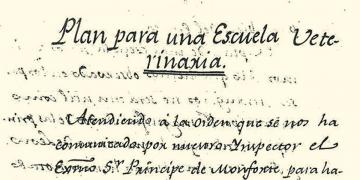 Plan para una Escuela Vete-
rinaria.
Atendiendo a la orden que se nos ha
comunicado por nuestro Inspector el
Exmo S.r Principe de Monforte, para ha-